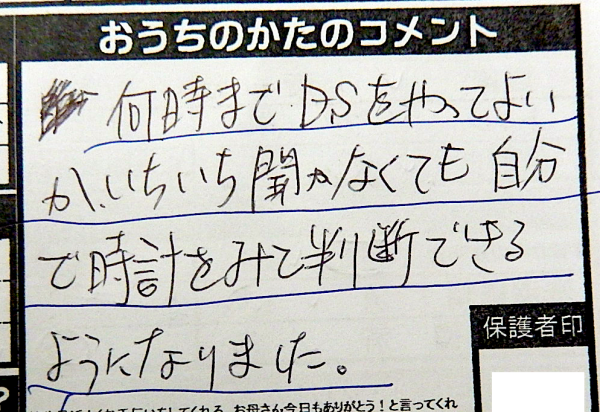 おうちのかたのコメント
何時まで DSをやってよい
か、いちいち聞かなくても 自分
で時計をみて判断できる
ようになりました。
保護者印
してくれる、お母さん今日もありがとう！と言ってくれ